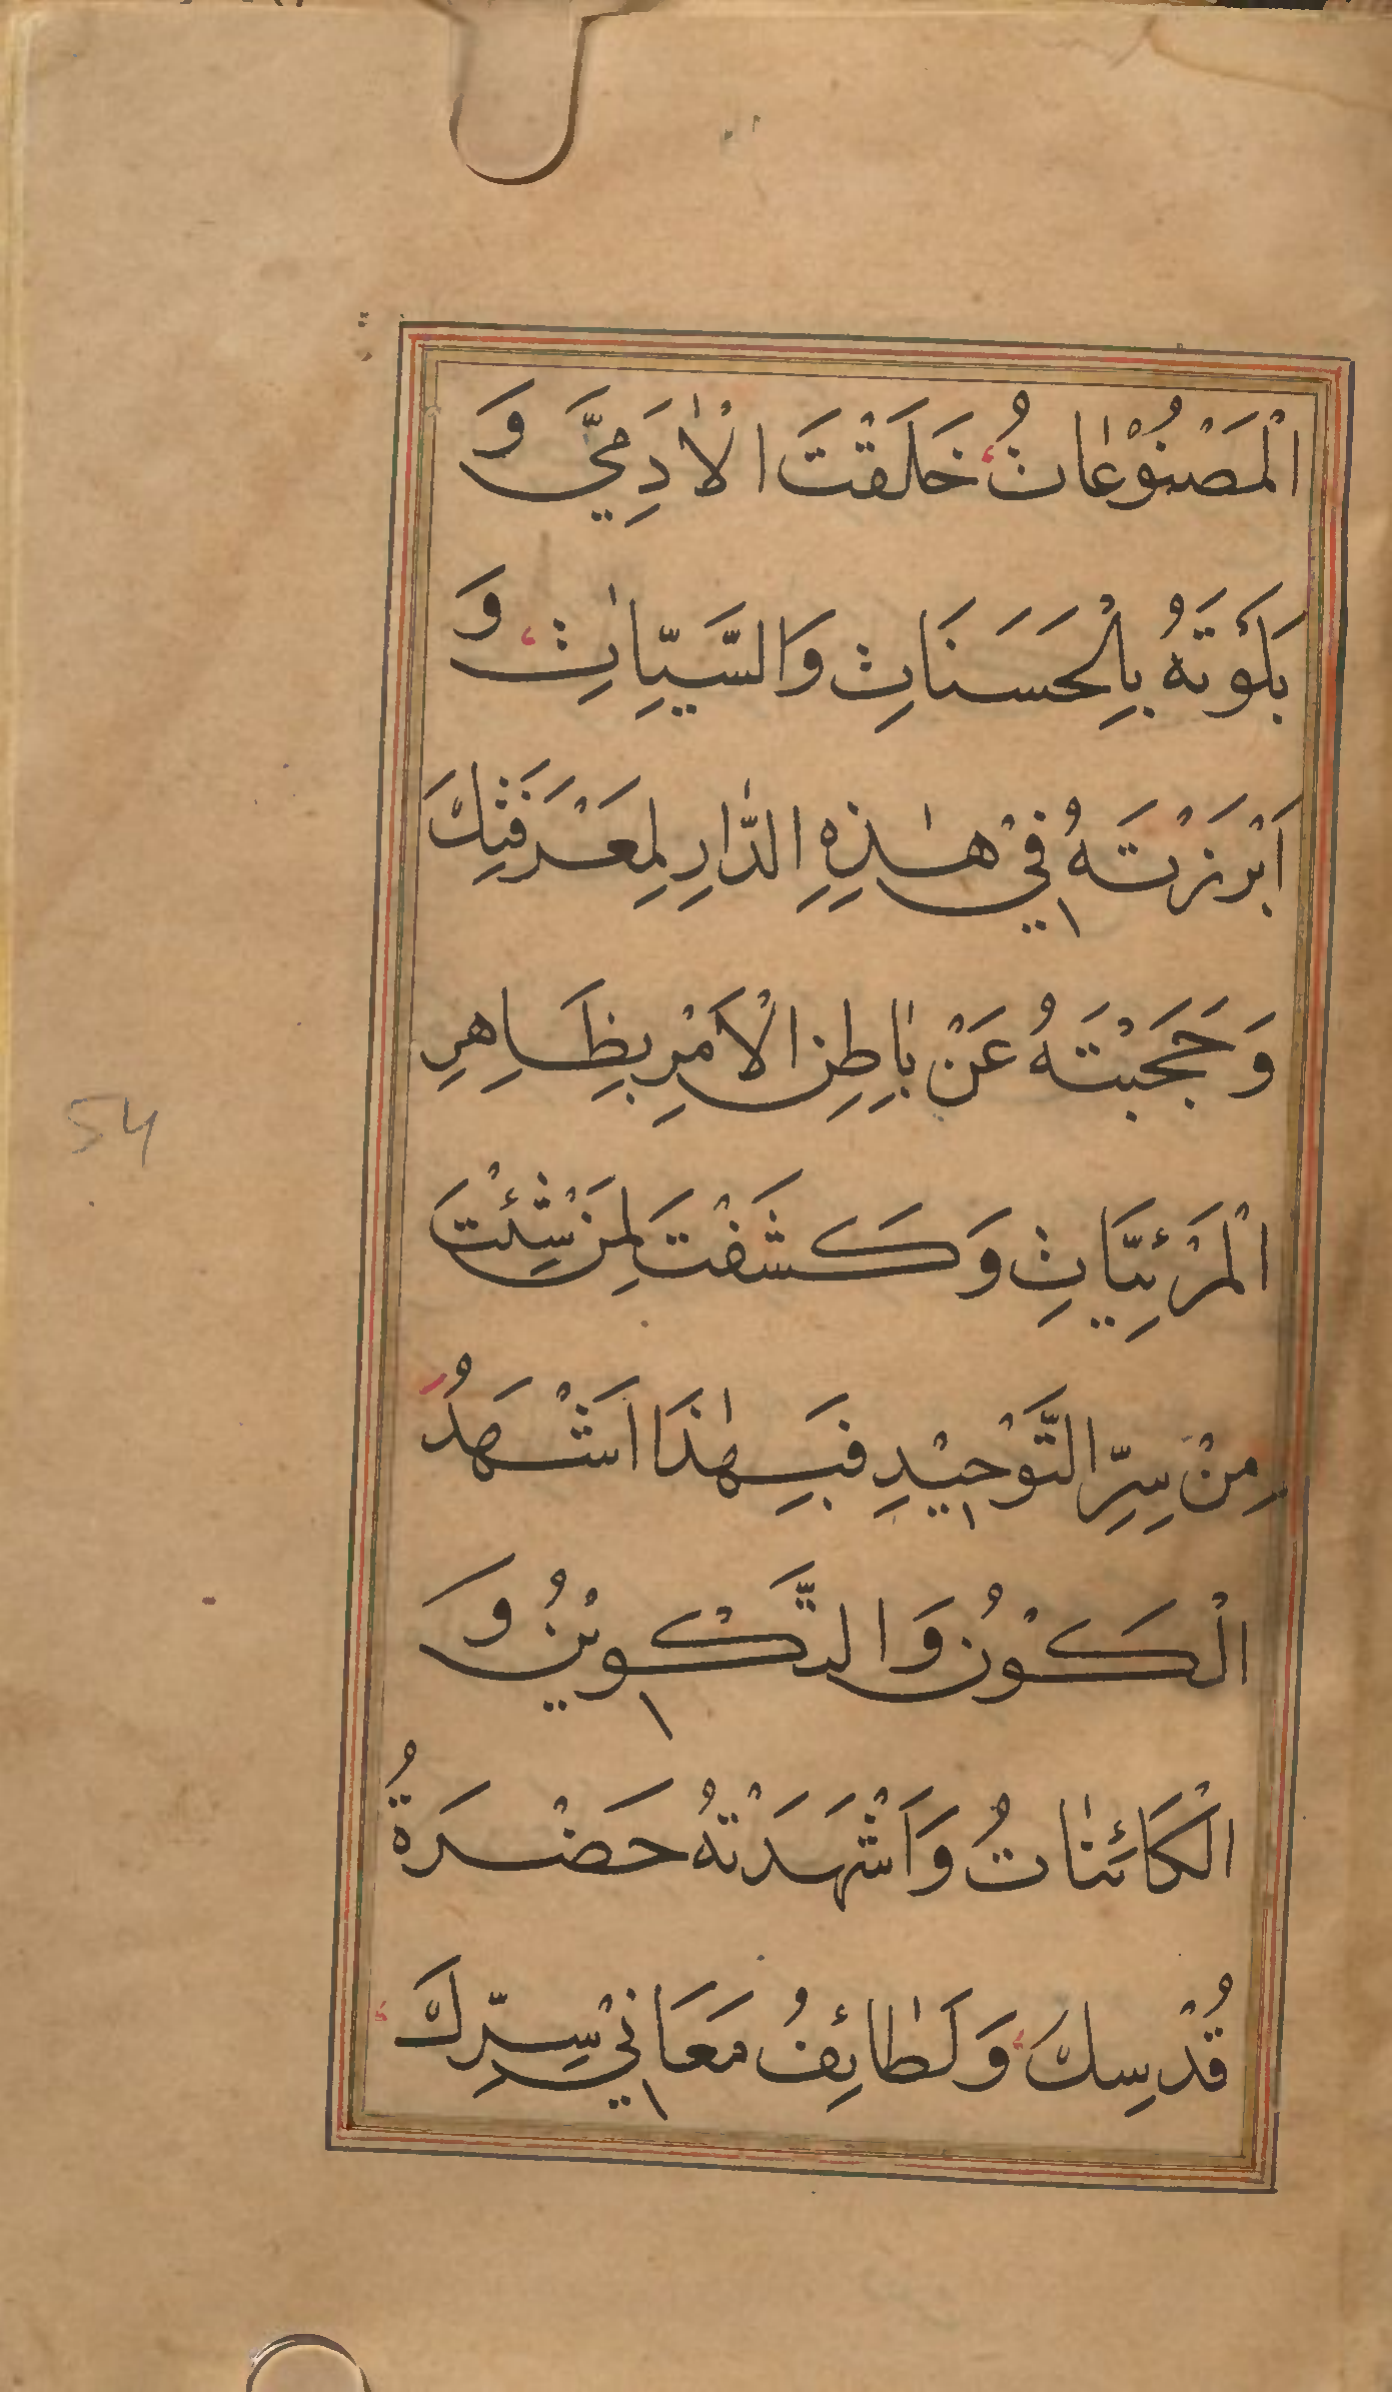 الْمَصْنُوْعَاتُ خَلَقْتَ الْاٰدَمِيَّ وَ
بَلَوْتَهُ بِالْحَسَنَاتِ وَالسَّيِّاٰتِ وَ
اَبْرَزْتَهُ فِيْ هٰذِهِ الدَّارِ لِمَعْرِفَتِكَ
وَحَجَبْتَهُ عَنْ بَاطِنِ الْاَمْرِ بِظَاهِرِ
الْمَرْئِيَّاتِ وَكَشَفْتَ لِمَنْ شِئْتَ
مِنْ سِرِّ التَّوْحِيْدِ فَبِهٰذَا اَشْهَدُ
الْكَوْنُ وَالتَّكْوِيْنُ وَ
الْكَائِنَاتُ وَاَشْهَدْتَهُ حَضْرَةُ
قُدْسِكَ وَلَطَائِفُ مَعَانِيْ سِرِّكَ
54